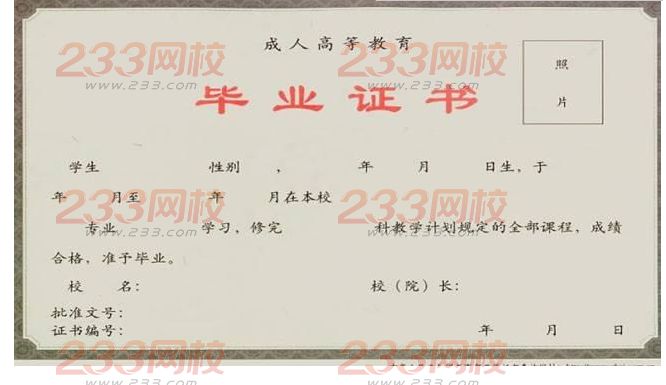 成人高等教育
毕业证书
照
片
学生 性别 , 年 月 日生，于
年 月至 年 月在本校
专业 学习，修完 科教学计划规定的全部课程，成绩
合格，准予毕业。
校 名： 校（院）长：
批准文号：
证书编号： 年 月 日
233网校 233网校
www.233.com www.233.com
233网校 233网校
www.233.com www.233.com
233网校 233网校
www.233.com www.233.com